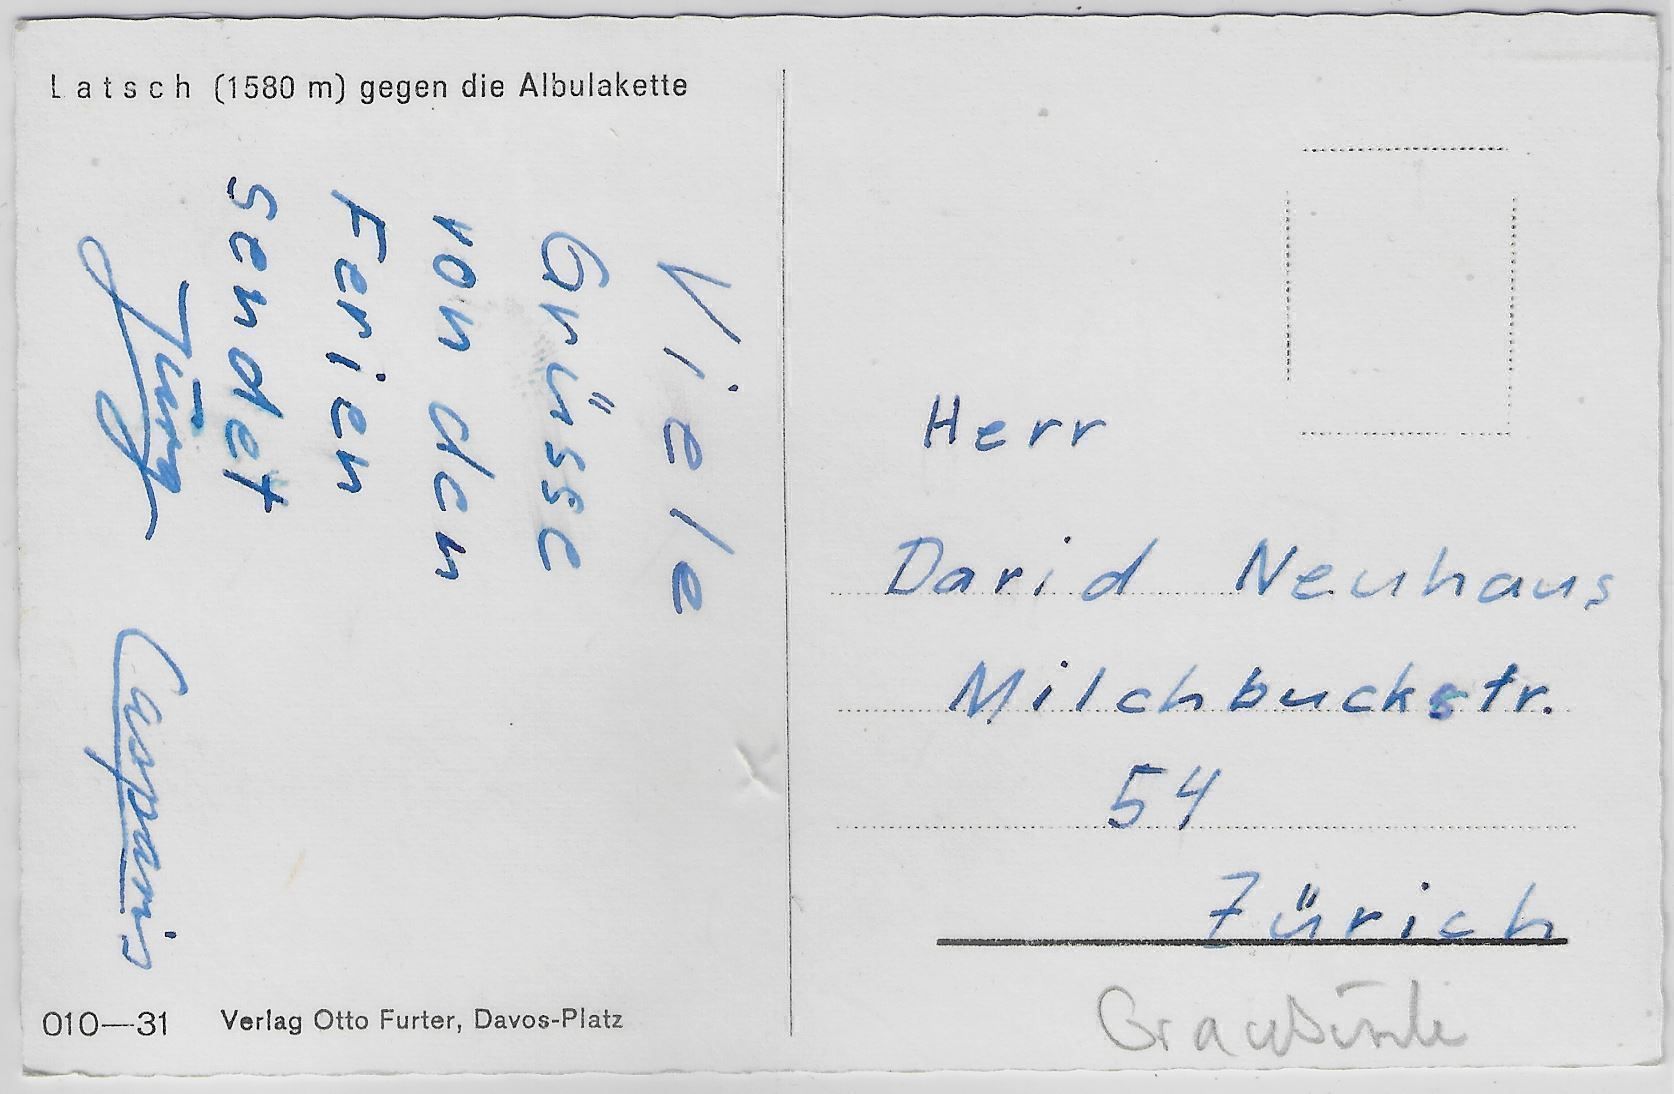 Latsch (1580 m) gegen die Albulakette
Viele
Grüsse
von den
Ferien
sendet
Jürg Casparis
010—31 Verlag Otto Furter, Davos-Platz
Herr
David Neuhaus
Milchbuckstr.
54
Zürich